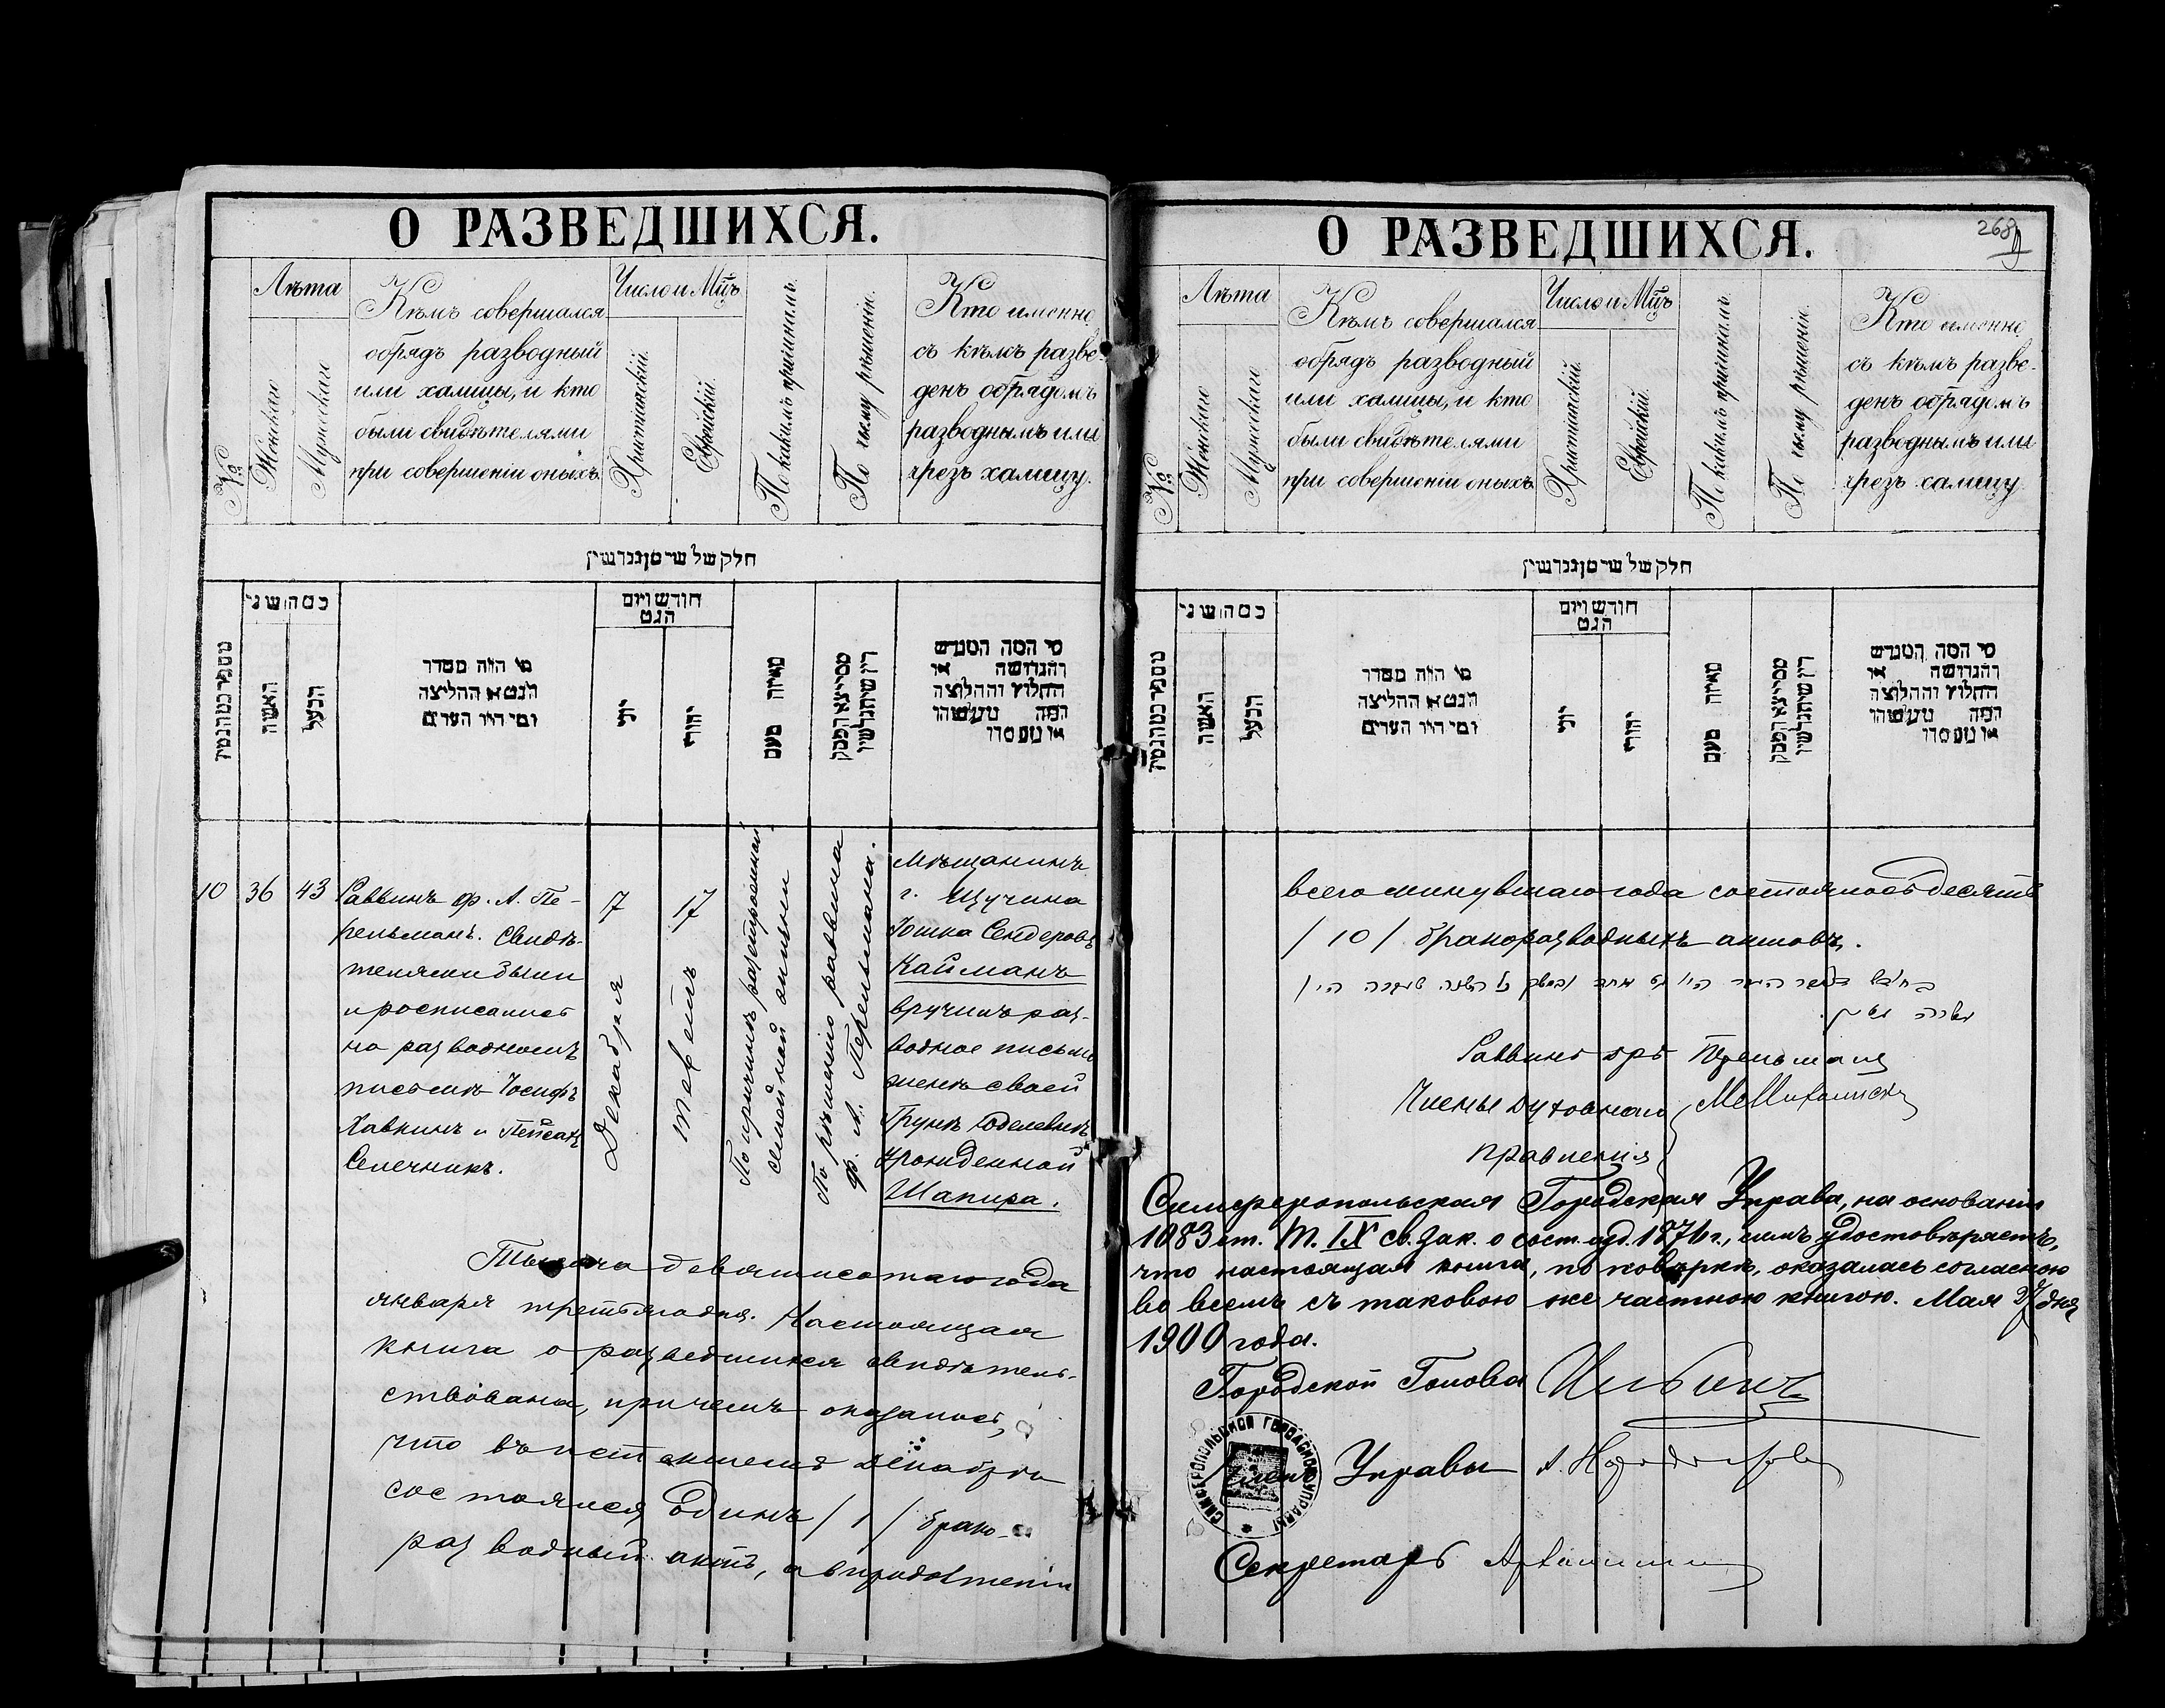 О РАЗВЕДШИХСЯ.
№
Лѣта
Женская
Мужеская
Кѣмъ совершался
обрядъ разводный
или халицы, и кто
были свидѣтелями
при совершеніи оныхъ.
Число и Мцъ
Христіаскій.
Еврейскій.
По какимъ причинамъ.
По чьему рѣшенію.
Кто именно
съ кѣмъ разве-
денъ обрядомъ
разводнымъ или
чрезъ халицу.
חלק של
כמה שני
האשה
הבעל
מי היה מסדר
הגט או החליצה
ומי היו העדים
חודש ויום
הגט
יוני
יהודי
מאיזה טעם
מי המה המגרש
והגרושה או
החלוץ והחלוצה
המה
או
10
36
43
Раввинъ Ф. А. Пе-
рельманъ. Свидѣ-
телями были
и росписались
на разводномъ
письмѣ Іосифъ
Хавкинъ и Пейсахъ
Семечникъ.
17
Декабря
17
тевейтъ
По причинѣ разстроенной
семейной жизни
По рѣшенію раввина
Ф. А. Перельмана.
Мѣщанинъ
г. Щучина
Іошка Сендеровъ
Кайманъ
вручилъ раз-
водное письмо
женѣ своей
Грунѣ Юделевнѣ
урожденной
Шапира.
Тысяча девятисотаго года
января третьяго дня. Настоящая
книга о разведшихся свидѣтель-
ствована, причемъ оказалось,
что въ истекшемъ декабрѣ
состоялся Одинъ /1/ брако-
разводный актъ, а впродолженіи
О РАЗВЕДШИХСЯ.
268
№
Лѣта
Женская
Мужеская
Кѣмъ совершался
обрядъ разводный
или халицы, и кто
были свидѣтелями
при совершеніи оныхъ.
Число и Мцъ
Христіаскій.
Еврейскій.
По какимъ причинамъ.
По чьему рѣшенію.
Кто именно
съ кѣмъ разве-
денъ обрядомъ
разводнымъ или
чрезъ халицу
חלק של
כמה שני
האשה
הבעל
מי היה מסדר
הגט או החליצה
ומי היו העדים
חודש ויום
הגט
יוני
יהודי
מאיזה טעם
מי המה המגרש
והגרושה או
החלוץ והחלוצה
המה
או
всего минувшаго года состоялось десять
/10/ бракоразводныхъ актовъ.
Раввинъ Перельманъ
Члены Духовнаго
Правленія
Симферопольская Городская Управа, на основаніи
1083 ст. т. IX св. зак. о сост. изд. 1876 г., симъ удостовѣряетъ,
что настоящая книга, по повѣркѣ, оказалась согласною
во всемъ съ таковою же частною книгою. Мая дня
1900 года.
Городской Голова
Членъ Управы
СИМФЕРОПОЛЬСКОЙ ГОРОДСКОЙ УПРАВЫ
Секретарь